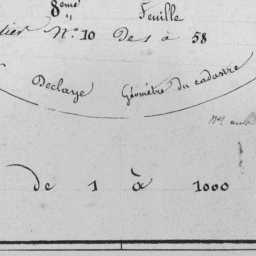 8ème Feuille
N.º 10 De 1 à 58
Declaye Géomètre du cadastre
de 1 à 1000